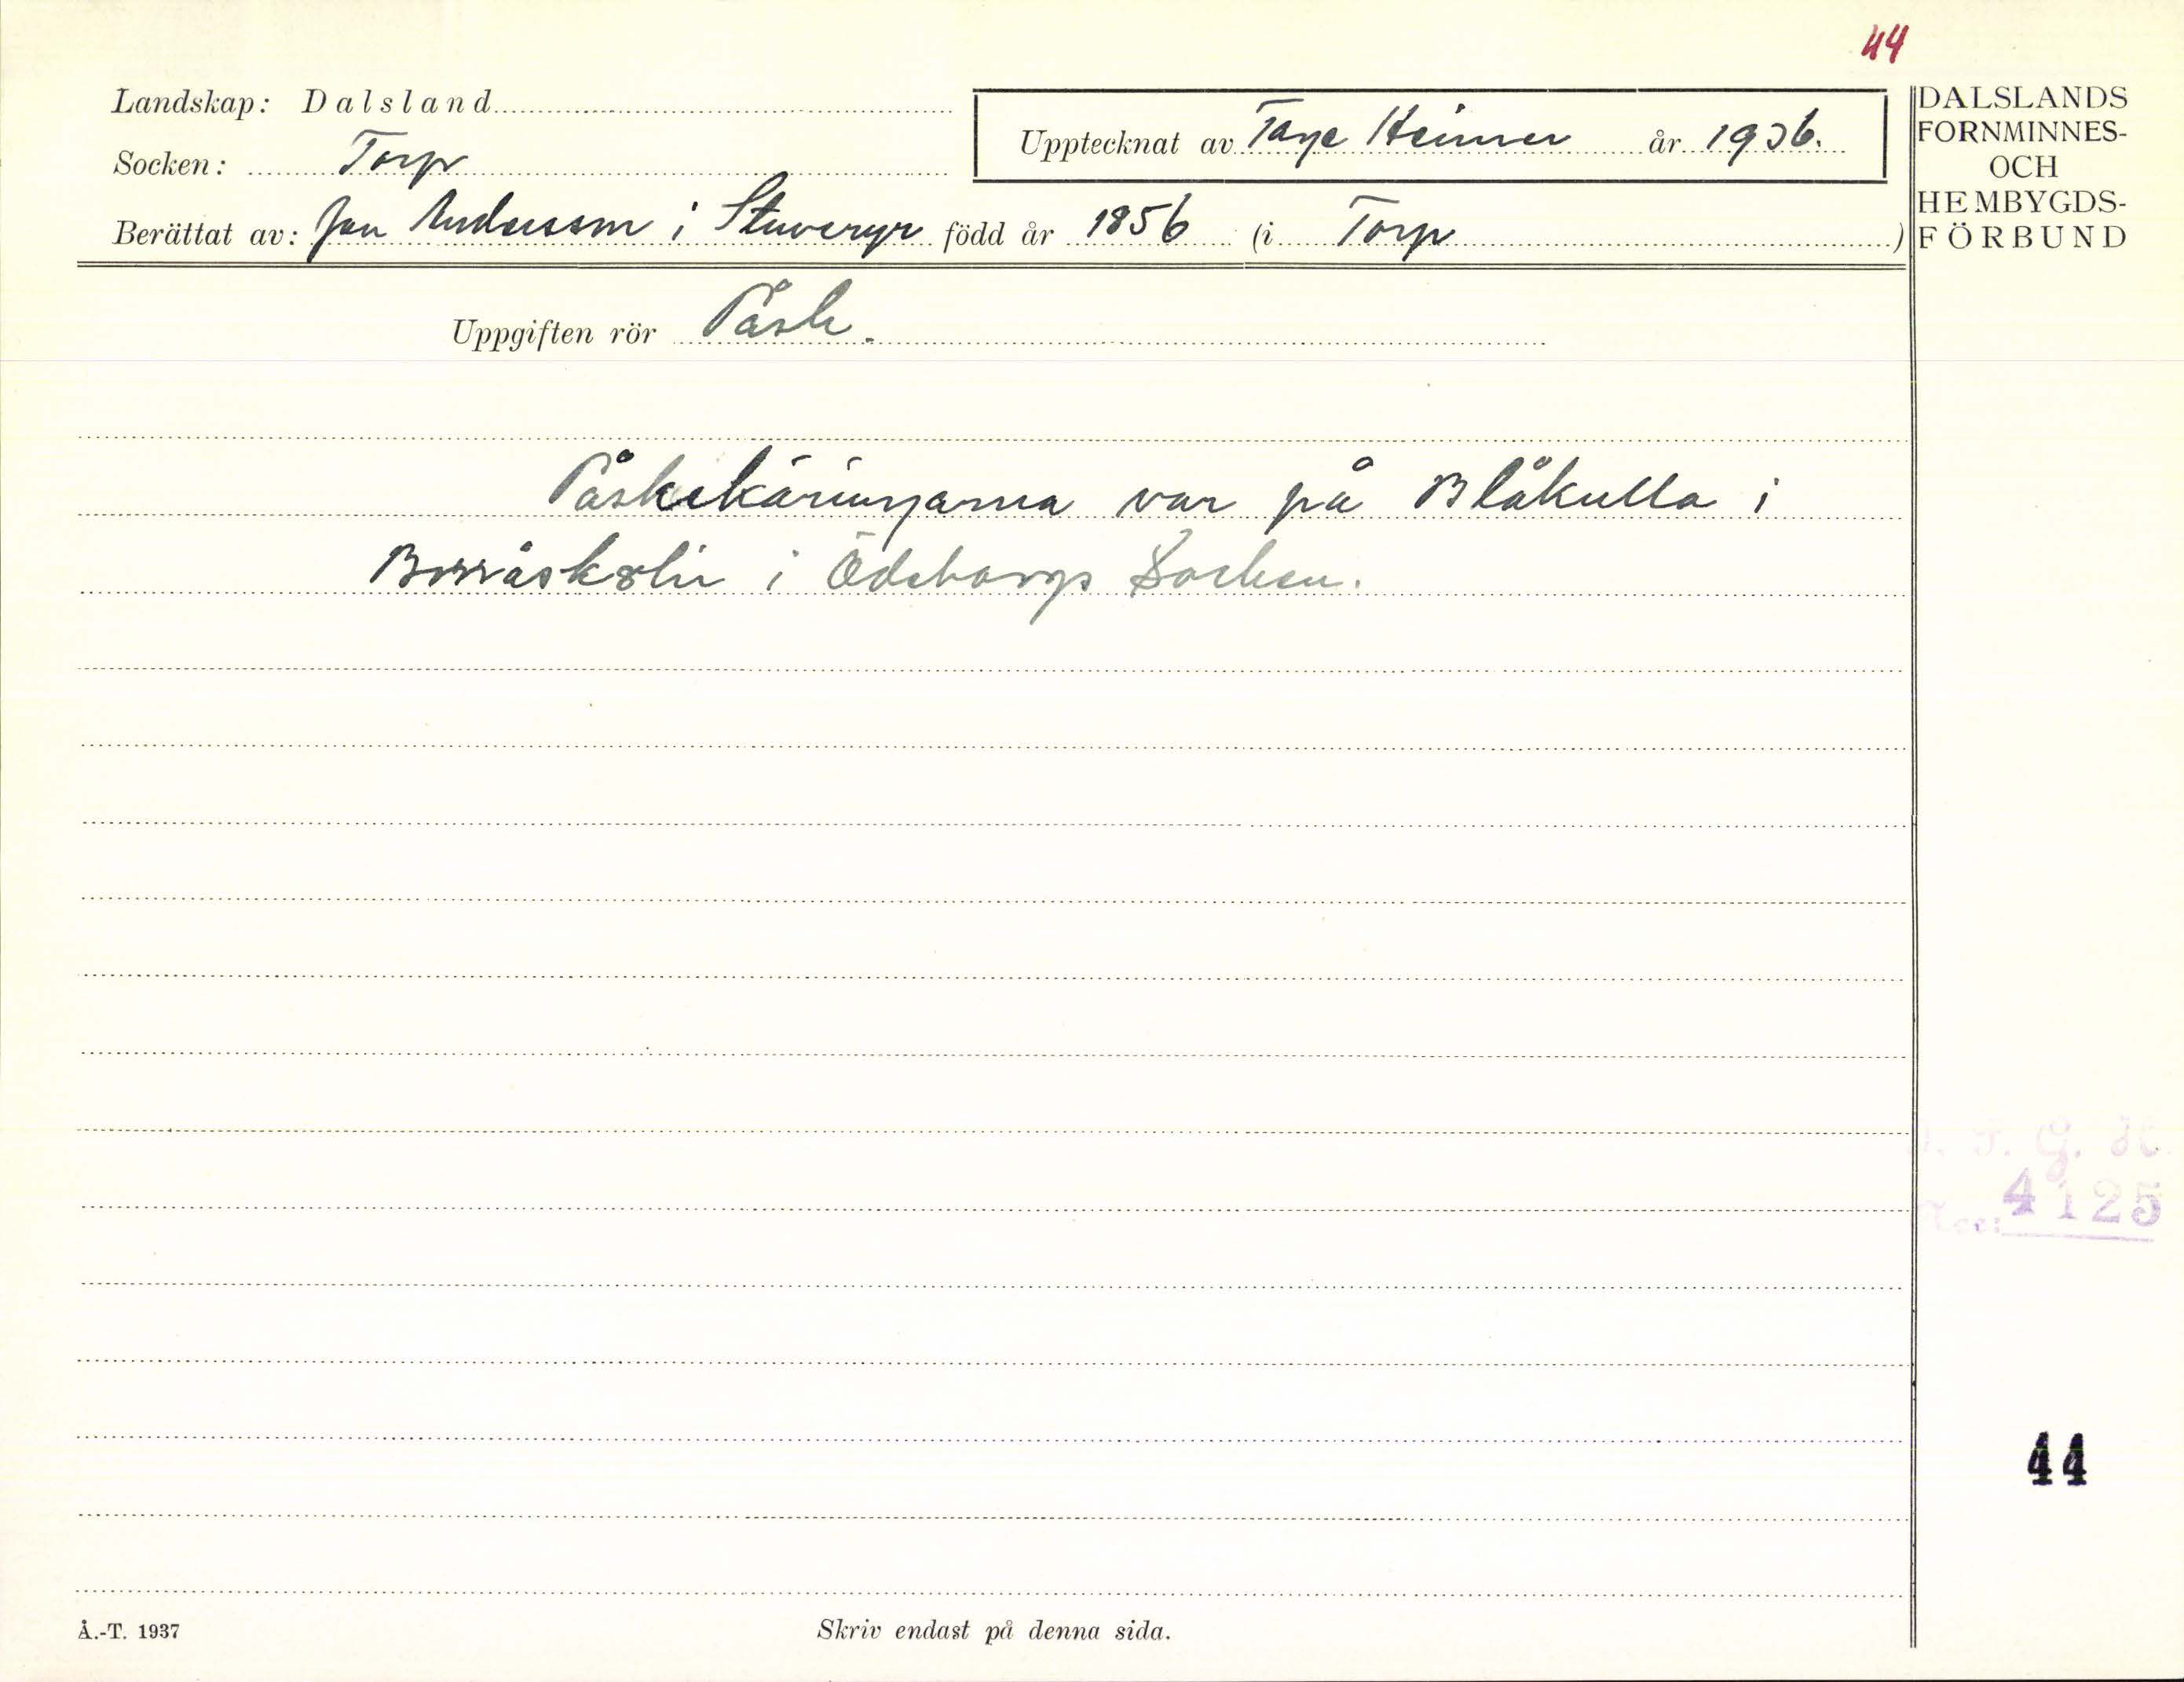 44
Landskap: Dalsland
Socken: Torp
Upptecknat av Tage Heimer år 1936.
Berättat av: Jan Andersson i Stuveryr född år 1856 (i Torp)
DALSLANDS
FORNMINNES-
OCH
HEMBYGDS-
FÖRBUND
Uppgiften rör Påsk.
Påskekäringarna var på Blåkulla i
i Ödeborgs Socken.
4125
44
Å.-T. 1937
Skriv endast på denna sida.